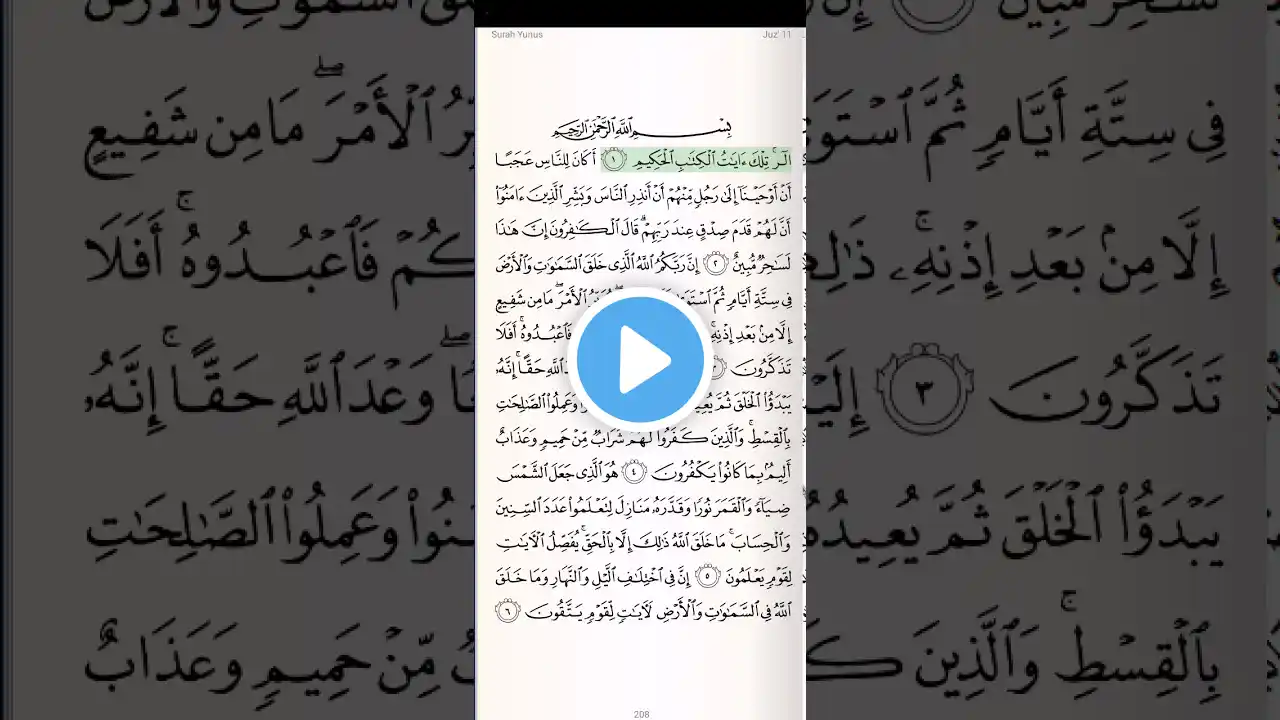 Surah Yunus
Juz' 11
بِسْمِ اللَّهِ الرَّحْمَٰنِ الرَّحِيمِ
الٓرۚ تِلۡكَ ءَايَٰتُ ٱلۡكِتَٰبِ ٱلۡحَكِيمِ ١ أَكَانَ لِلنَّاسِ عَجَبًا
أَنۡ أَوۡحَيۡنَآ إِلَىٰ رَجُلٖ مِّنۡهُمۡ أَنۡ أَنذِرِ ٱلنَّاسَ وَبَشِّرِ ٱلَّذِينَ ءَامَنُوٓاْ
أَنَّ لَهُمۡ قَدَمَ صِدۡقٍ عِندَ رَبِّهِمۡۗ قَالَ ٱلۡكَٰفِرُونَ إِنَّ هَٰذَا
لَسَٰحِرٞ مُّبِينٌ ٢ إِنَّ رَبَّكُمُ ٱللَّهُ ٱلَّذِي خَلَقَ ٱلسَّمَٰوَٰتِ وَٱلۡأَرۡضَ
فِي سِتَّةِ أَيَّامٖ ثُمَّ ٱسۡتَوَىٰ يُدَبِّرُ ٱلۡأَمۡرَۖ مَا مِن شَفِيعٍ
إِلَّا مِنۢ بَعۡدِ إِذۡنِهِۦۚ فَٱعۡبُدُوهُۚ أَفَلَا
تَذَكَّرُونَ ٣ وَعۡدَ ٱللَّهِ حَقًّاۚ إِنَّهُۥ
يَبۡدَؤُاْ ٱلۡخَلۡقَ ثُمَّ يُعِيدُهُۥ وَعَمِلُواْ ٱلصَّٰلِحَٰتِ
بِٱلۡقِسۡطِۚ وَٱلَّذِينَ كَفَرُواْ لَهُمۡ شَرَابٞ مِّنۡ حَمِيمٖ وَعَذَابٌ
أَلِيمُۢ بِمَا كَانُواْ يَكۡفُرُونَ ٤ هُوَ ٱلَّذِي جَعَلَ ٱلشَّمۡسَ
ضِيَآءٗ وَٱلۡقَمَرَ نُورٗا وَقَدَّرَهُۥ مَنَازِلَ لِتَعۡلَمُواْ عَدَدَ ٱلسِّنِينَ
وَٱلۡحِسَابَۚ مَا خَلَقَ ٱللَّهُ ذَٰلِكَ إِلَّا بِٱلۡحَقِّۚ يُفَصِّلُ ٱلۡأٓيَٰتِ
لِقَوۡمٖ يَعۡلَمُونَ ٥ إِنَّ فِي ٱخۡتِلَٰفِ ٱلَّيۡلِ وَٱلنَّهَارِ وَمَا خَلَقَ
ٱللَّهُ فِي ٱلسَّمَٰوَٰتِ وَٱلۡأَرۡضِ لَأٓيَٰتٖ لِّقَوۡمٖ يَتَّقُونَ ٦
208